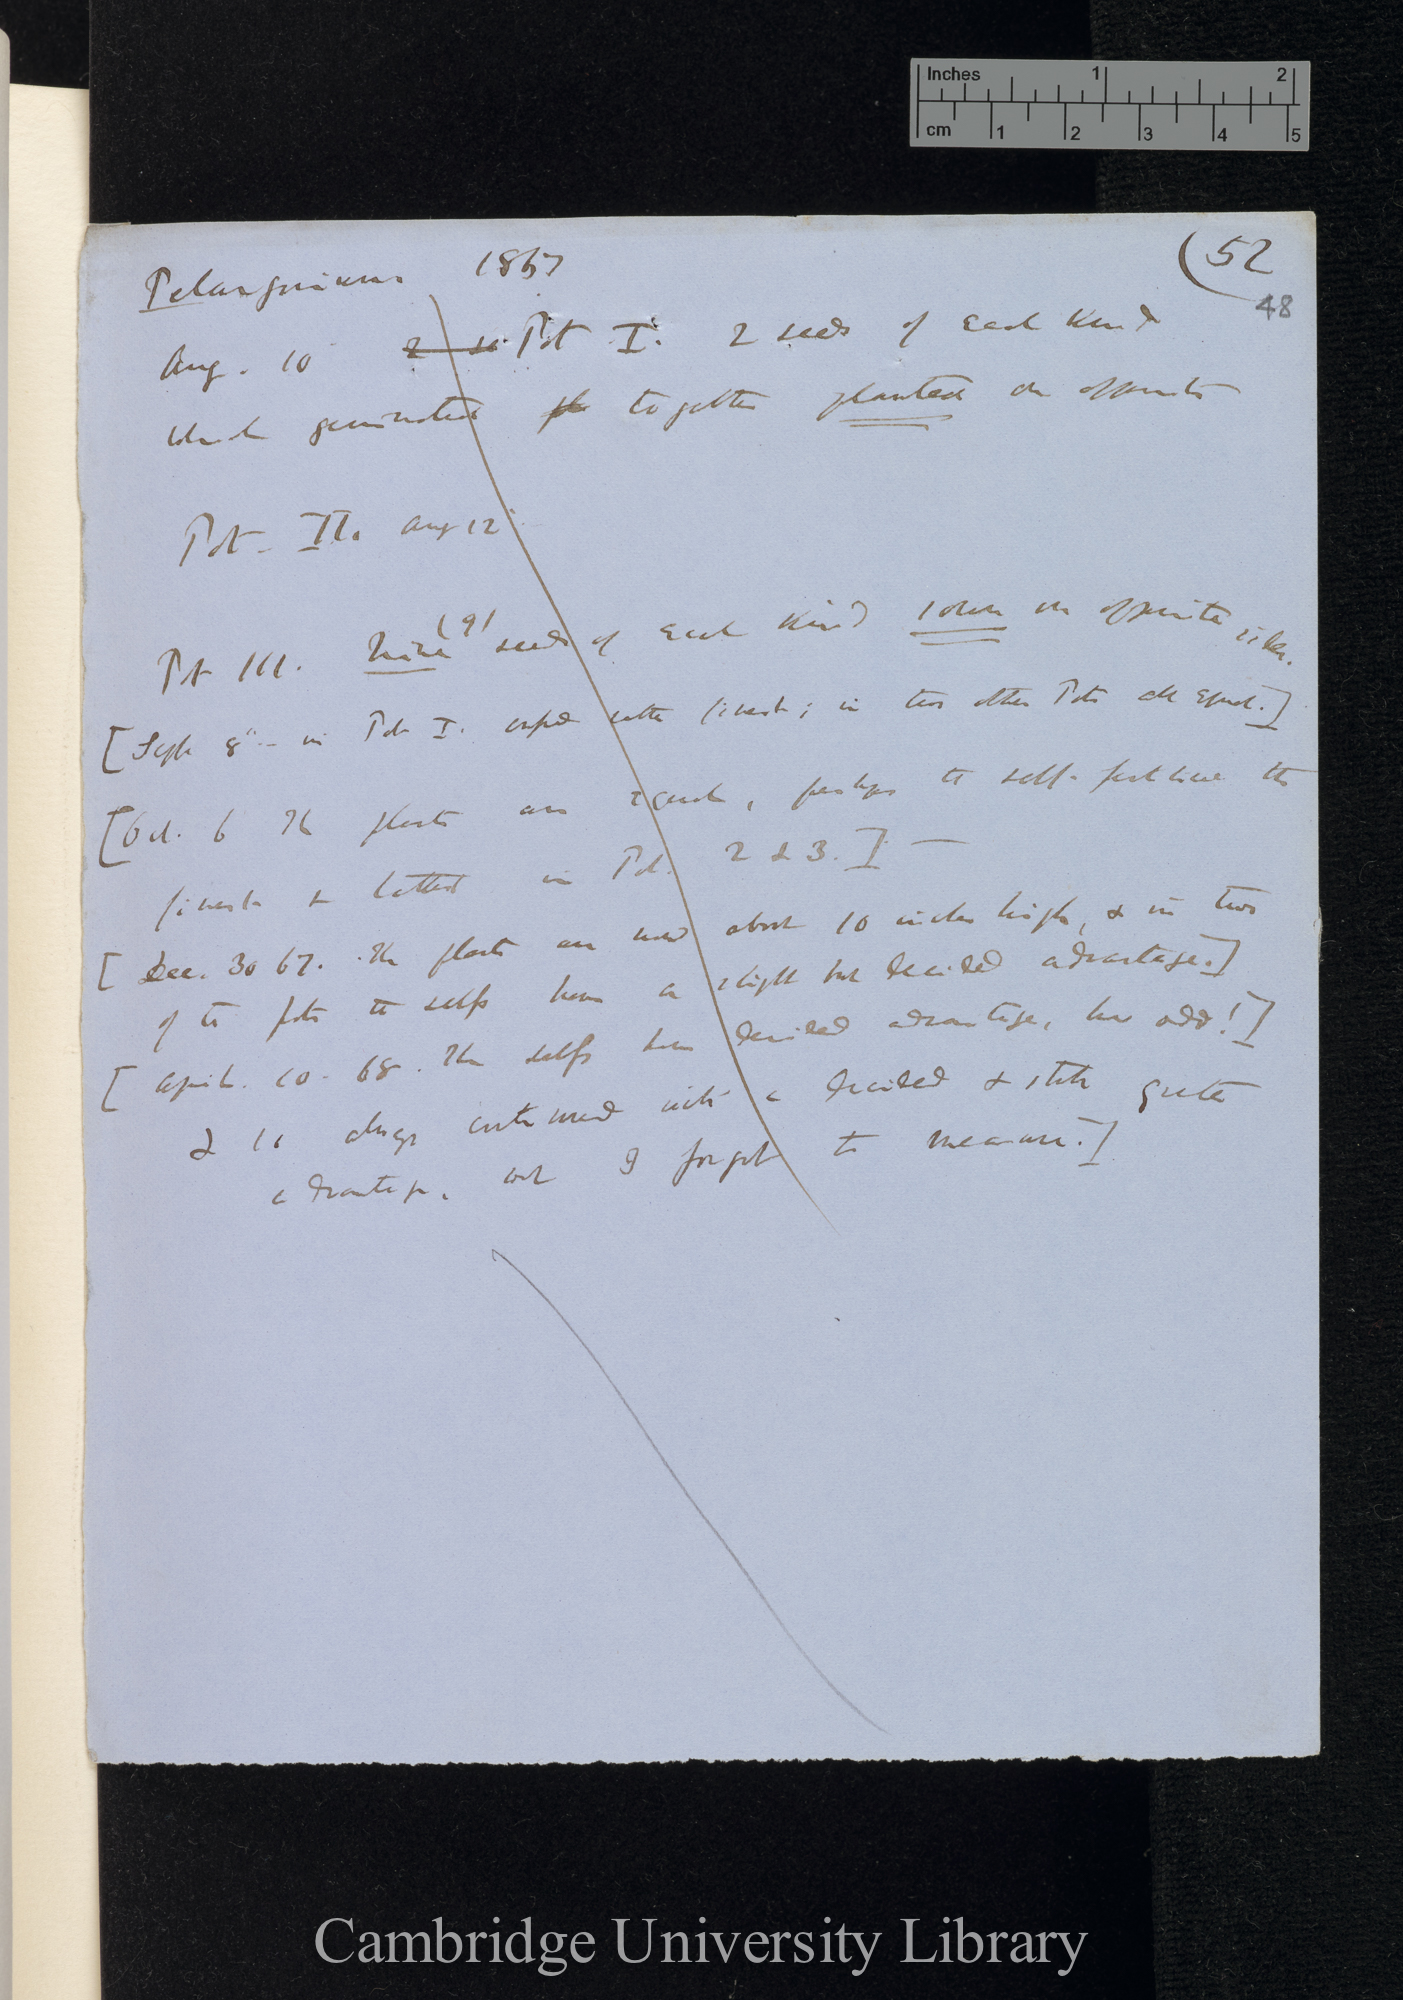 Inches 1 2
cm 1 2 3 4 5
(52
48
Pelargonium 1867
Aug. 10 2 se Pot I. 2 seeds of each kind
which germinated pl together planted on opposite
Pot II. Aug 12
Pot III. Nine (9) seeds of each kind sown on opposite sides.
[Sept 8th — in Pot I. crossed rather finest; in two other Pots all equal.]
[Oct. 6 The plants are equal, perhaps the self-fertilised the
finest & tallest in Pot. 2 & 3.] —
[Dec. 30 67. The plants are now about 10 inches high, & in two
of the pots the selfs have a slight but decided advantage.]
[April. 10. 68. The selfs have decided advantage, how odd!]
& so always continued with a decided & still greater
advantage, but I forgot to measure.]
Cambridge University Library